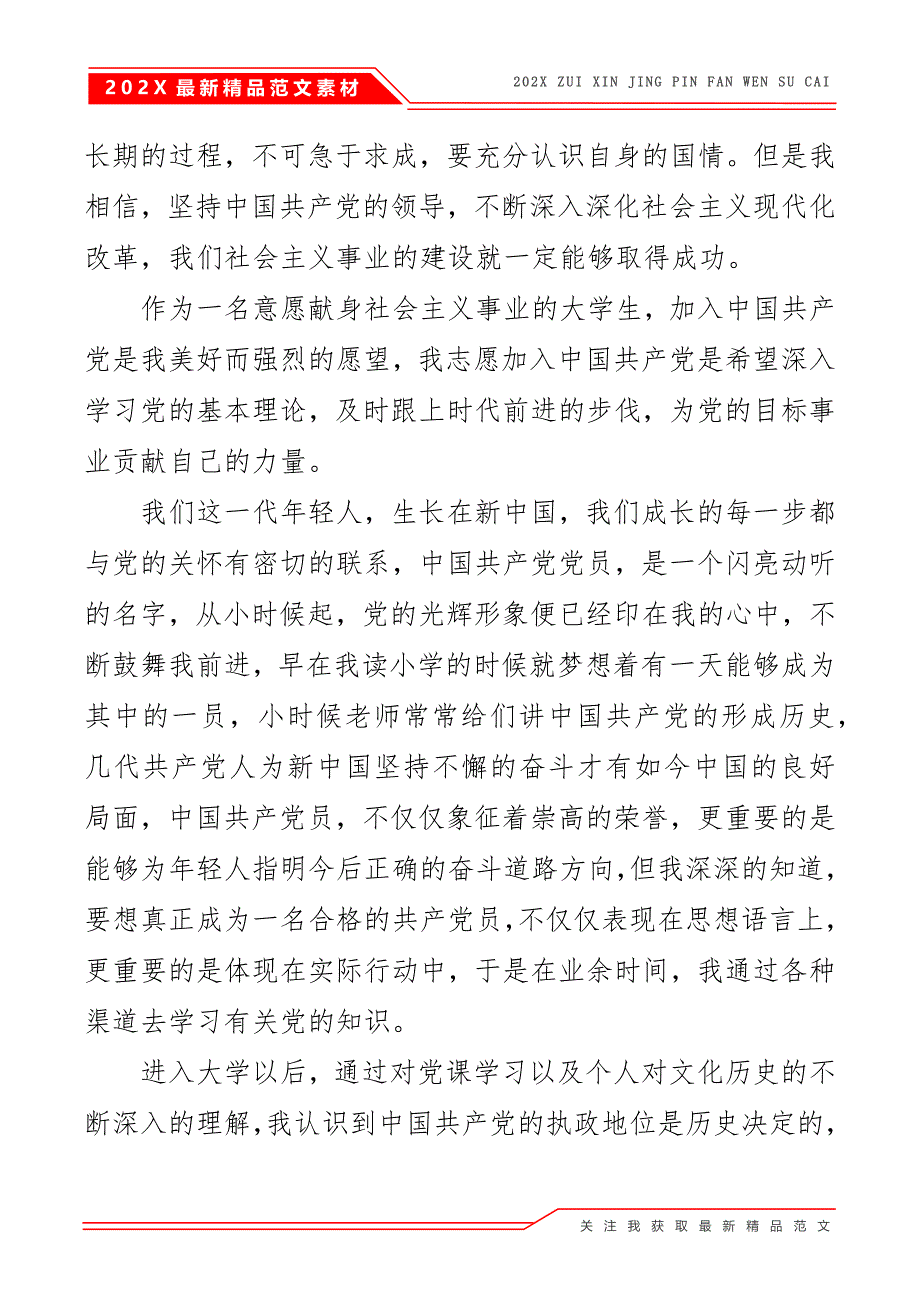 202X最新精品范文素材
202X ZUI XIN JING PIN FAN WEN SU CAI
长期的过程，不可急于求成，要充分认识自身的国情。但是我
相信，坚持中国共产党的领导，不断深入深化社会主义现代化
改革，我们社会主义事业的建设就一定能够取得成功。
作为一名意愿献身社会主义事业的大学生，加入中国共产
党是我美好而强烈的愿望，我志愿加入中国共产党是希望深入
学习党的基本理论，及时跟上时代前进的步伐，为党的目标事
业贡献自己的力量。
我们这一代年轻人，生长在新中国，我们成长的每一步都
与党的关怀有密切的联系，中国共产党党员，是一个闪亮动听
的名字，从小时候起，党的光辉形象便已经印在我的心中，不
断鼓舞我前进，早在我读小学的时候就梦想着有一天能够成为
其中的一员，小时候老师常常给们讲中国共产党的形成历史，
几代共产党人为新中国坚持不懈的奋斗才有如今中国的良好
局面，中国共产党员，不仅仅象征着崇高的荣誉，更重要的是
能够为年轻人指明今后正确的奋斗道路方向，但我深深的知道，
要想真正成为一名合格的共产党员，不仅仅表现在思想语言上，
更重要的是体现在实际行动中，于是在业余时间，我通过各种
渠道去学习有关党的知识。
进入大学以后，通过对党课学习以及个人对文化历史的不
断深入的理解，我认识到中国共产党的执政地位是历史决定的，
关注我获取最新精品范文